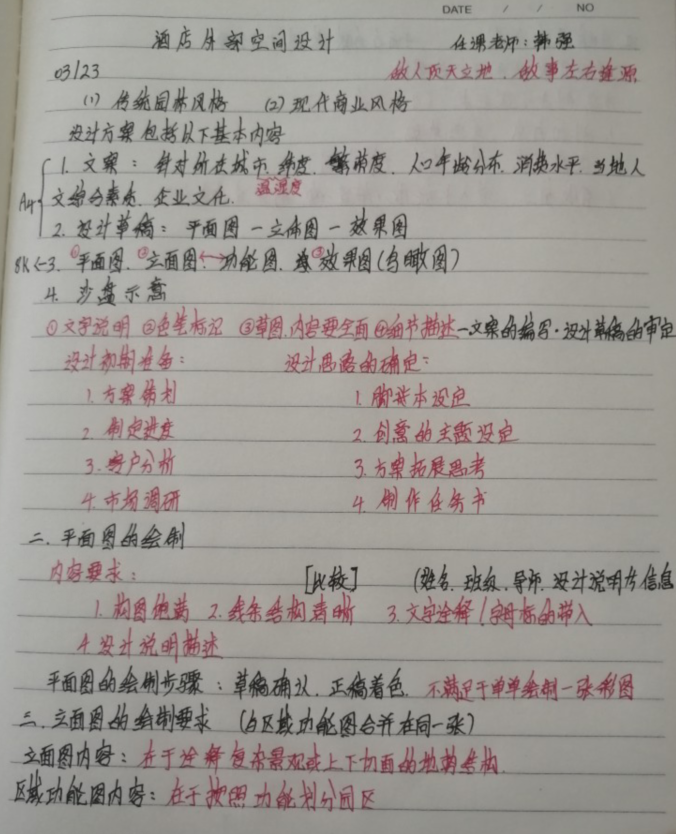 DATE / / NO
酒店外部空间设计 任课老师:韩强
03/23 做人顶天立地,做事左右逢源
(1) 传统园林风格 (2) 现代商业风格
设计方案包括以下基本内容
1. 文案:针对所选城市,纬度,繁荣度,人口年龄分布,消费水平,当地人
A4 文综合素质,企业文化. 温湿度
2. 设计草稿:平面图-立体图-效果图
8K←3. ①平面图. ②立面图↔功能图. ③效果图(鸟瞰图)
4. 沙盘示意
①文字说明 ②色笔标记 ③草图.内容要全面 ④细节描述-文案的编写·设计草稿的审定
设计初期准备: 设计思路的确定:
1. 方案策划 1. 脚本设定
2. 制定进度 2. 创意的主题设定
3. 客户分析 3. 方案拓展思考
4. 市场调研 4. 制作任务书
二. 平面图的绘制
内容要求: [比较] (姓名.班级.导师.设计说明为信息
1. 构图饱满 2. 线条结构清晰 3. 文字诠释/字母标的带入
4. 设计说明描述
平面图的绘制步骤:草稿确认.正稿着色. 不满足于单单绘制一张彩图
三. 立面图的绘制要求 (与区域功能图合并在同一张)
立面图内容:在于诠释复杂景观或上下切面的地势结构.
区域功能图内容:在于按照功能划分园区